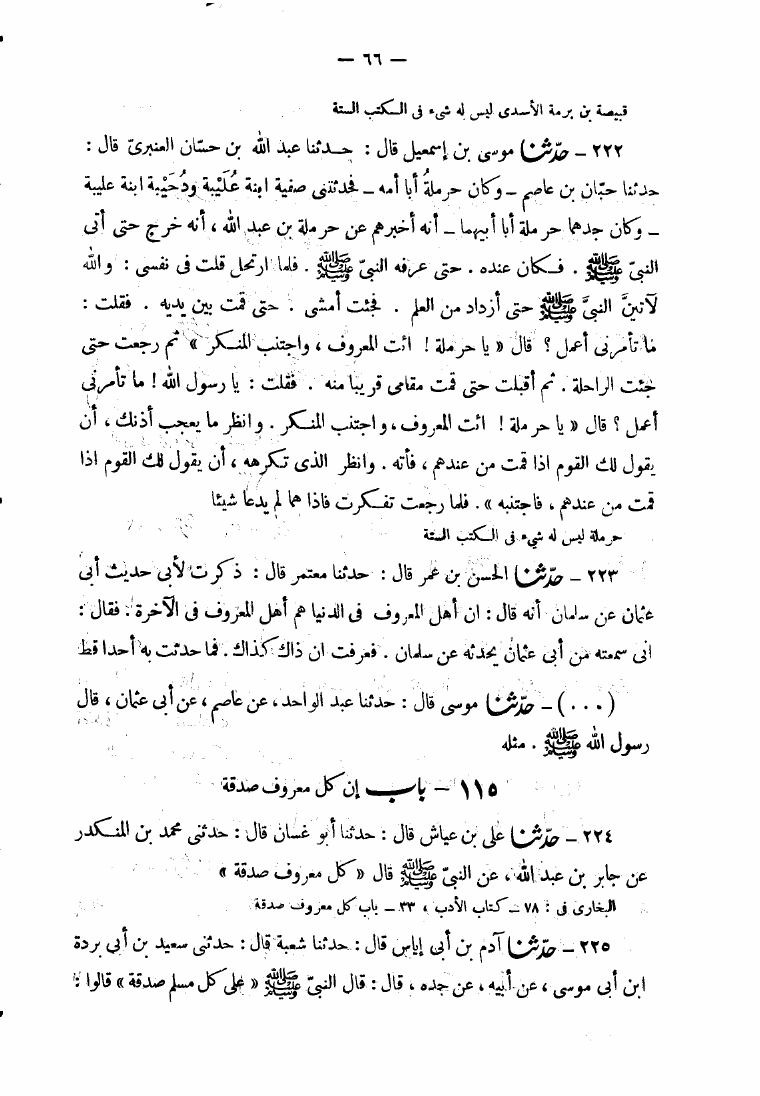 — ٦٦ —
قبيصة بن برمة الأسدى ليس له شىء فى الكتب الستة
٢٢٢ – حدّثنا موسى بن إسمعيل قال : حدثنا عبد الله بن حسّان العنبرىّ قال :
حدثنا حبّان بن عاصم – وكان حرملةُ أبا أمه – فحدثتنى صفية ابنة عُلَيْبة ودُحَيْبة ابنة عليبة
– وكان جدهما حرملة أبا أبيهما – أنه أخبرهم عن حرملة بن عبد الله ، أنه خرج حتى أتى
النبىّ ﷺ . فكان عنده . حتى عرفه النبىّ ﷺ . فلما ارتحل قلت فى نفسى : والله
لآتينَّ النبىَّ ﷺ حتى أزداد من العلم . فجئت أمشى . حتى قمت بين يديه . فقلت :
ما تأمرنى أعمل ؟ قال « يا حرملة ! ائت المعروف ، واجتنب المنكر » ثم رجعت حتى
جئت الراحلة . ثم أقبلت حتى قمت مقامى قريبا منه . فقلت : يا رسول الله ! ما تأمرنى
أعمل ؟ قال « يا حرملة ! ائت المعروف ، واجتنب المنكر . وانظر ما يعجب أذنك ، أن
يقول لك القوم اذا قمت من عندهم ، فأته . وانظر الذى تكرهه ، أن يقول لك القوم اذا
قمت من عندهم ، فاجتنبه » . فلما رجعت تفكرت فاذا هما لم يدعا شيئا
حرملة ليس له شىء فى الكتب الستة
٢٢٣ – حدّثنا الحسن بن عمر قال : حدثنا معتمر قال : ذكرت لأبى حديث أبى
عثمان عن سلمان أنه قال : ان أهل المعروف فى الدنيا هم أهل المعروف فى الآخرة . فقال :
انى سمعته من أبى عثمان يحدثه عن سلمان . فعرفت ان ذاك كذاك . فما حدثت به أحدا قط
( . . . ) – حدّثنا موسى قال : حدثنا عبد الواحد ، عن عاصم ، عن أبى عثمان ، قال
رسول الله ﷺ . مثله
١١٥ – باب إن كل معروف صدقة
٢٢٤ – حدّثنا على بن عياش قال : حدثنا أبو غسان قال : حدثنى محمد بن المنكدر
عن جابر بن عبد الله ، عن النبىّ ﷺ قال « كل معروف صدقة »
البخارى فى : ٧٨ – كتاب الأدب ، ٣٣ – باب كل معروف صدقة
٢٢٥ – حدّثنا آدم بن أبى إياس قال : حدثنا شعبة قال : حدثنى سعيد بن أبى بردة
ابن أبى موسى ، عن أبيه ، عن جده ، قال : قال النبىّ ﷺ « على كل مسلم صدقة » قالوا :